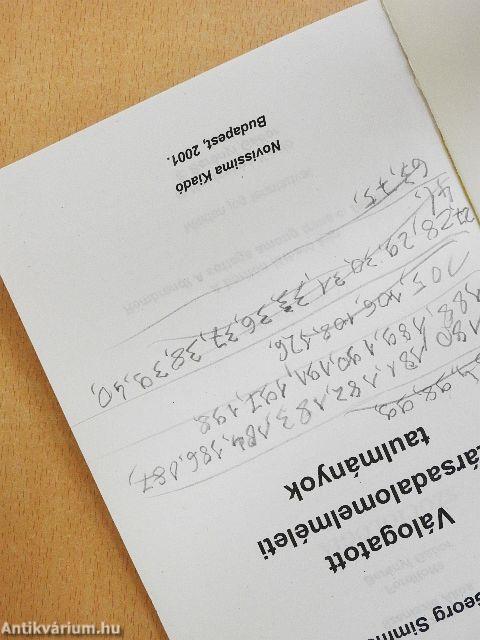 Georg Simm
Válogatott
társadalomelméleti
taulmányok
98, 99,
180 181, 182, 183, 184, 186, 187,
188, 189, 190, 191, 197, 198,
105, 106, 108, 126,
27, 28, 29, 30, 31, 33, 36, 37, 38, 39, 40,
41,
67, 75,
Novissima Kiadó
Budapest, 2001.
Antikvárium.hu